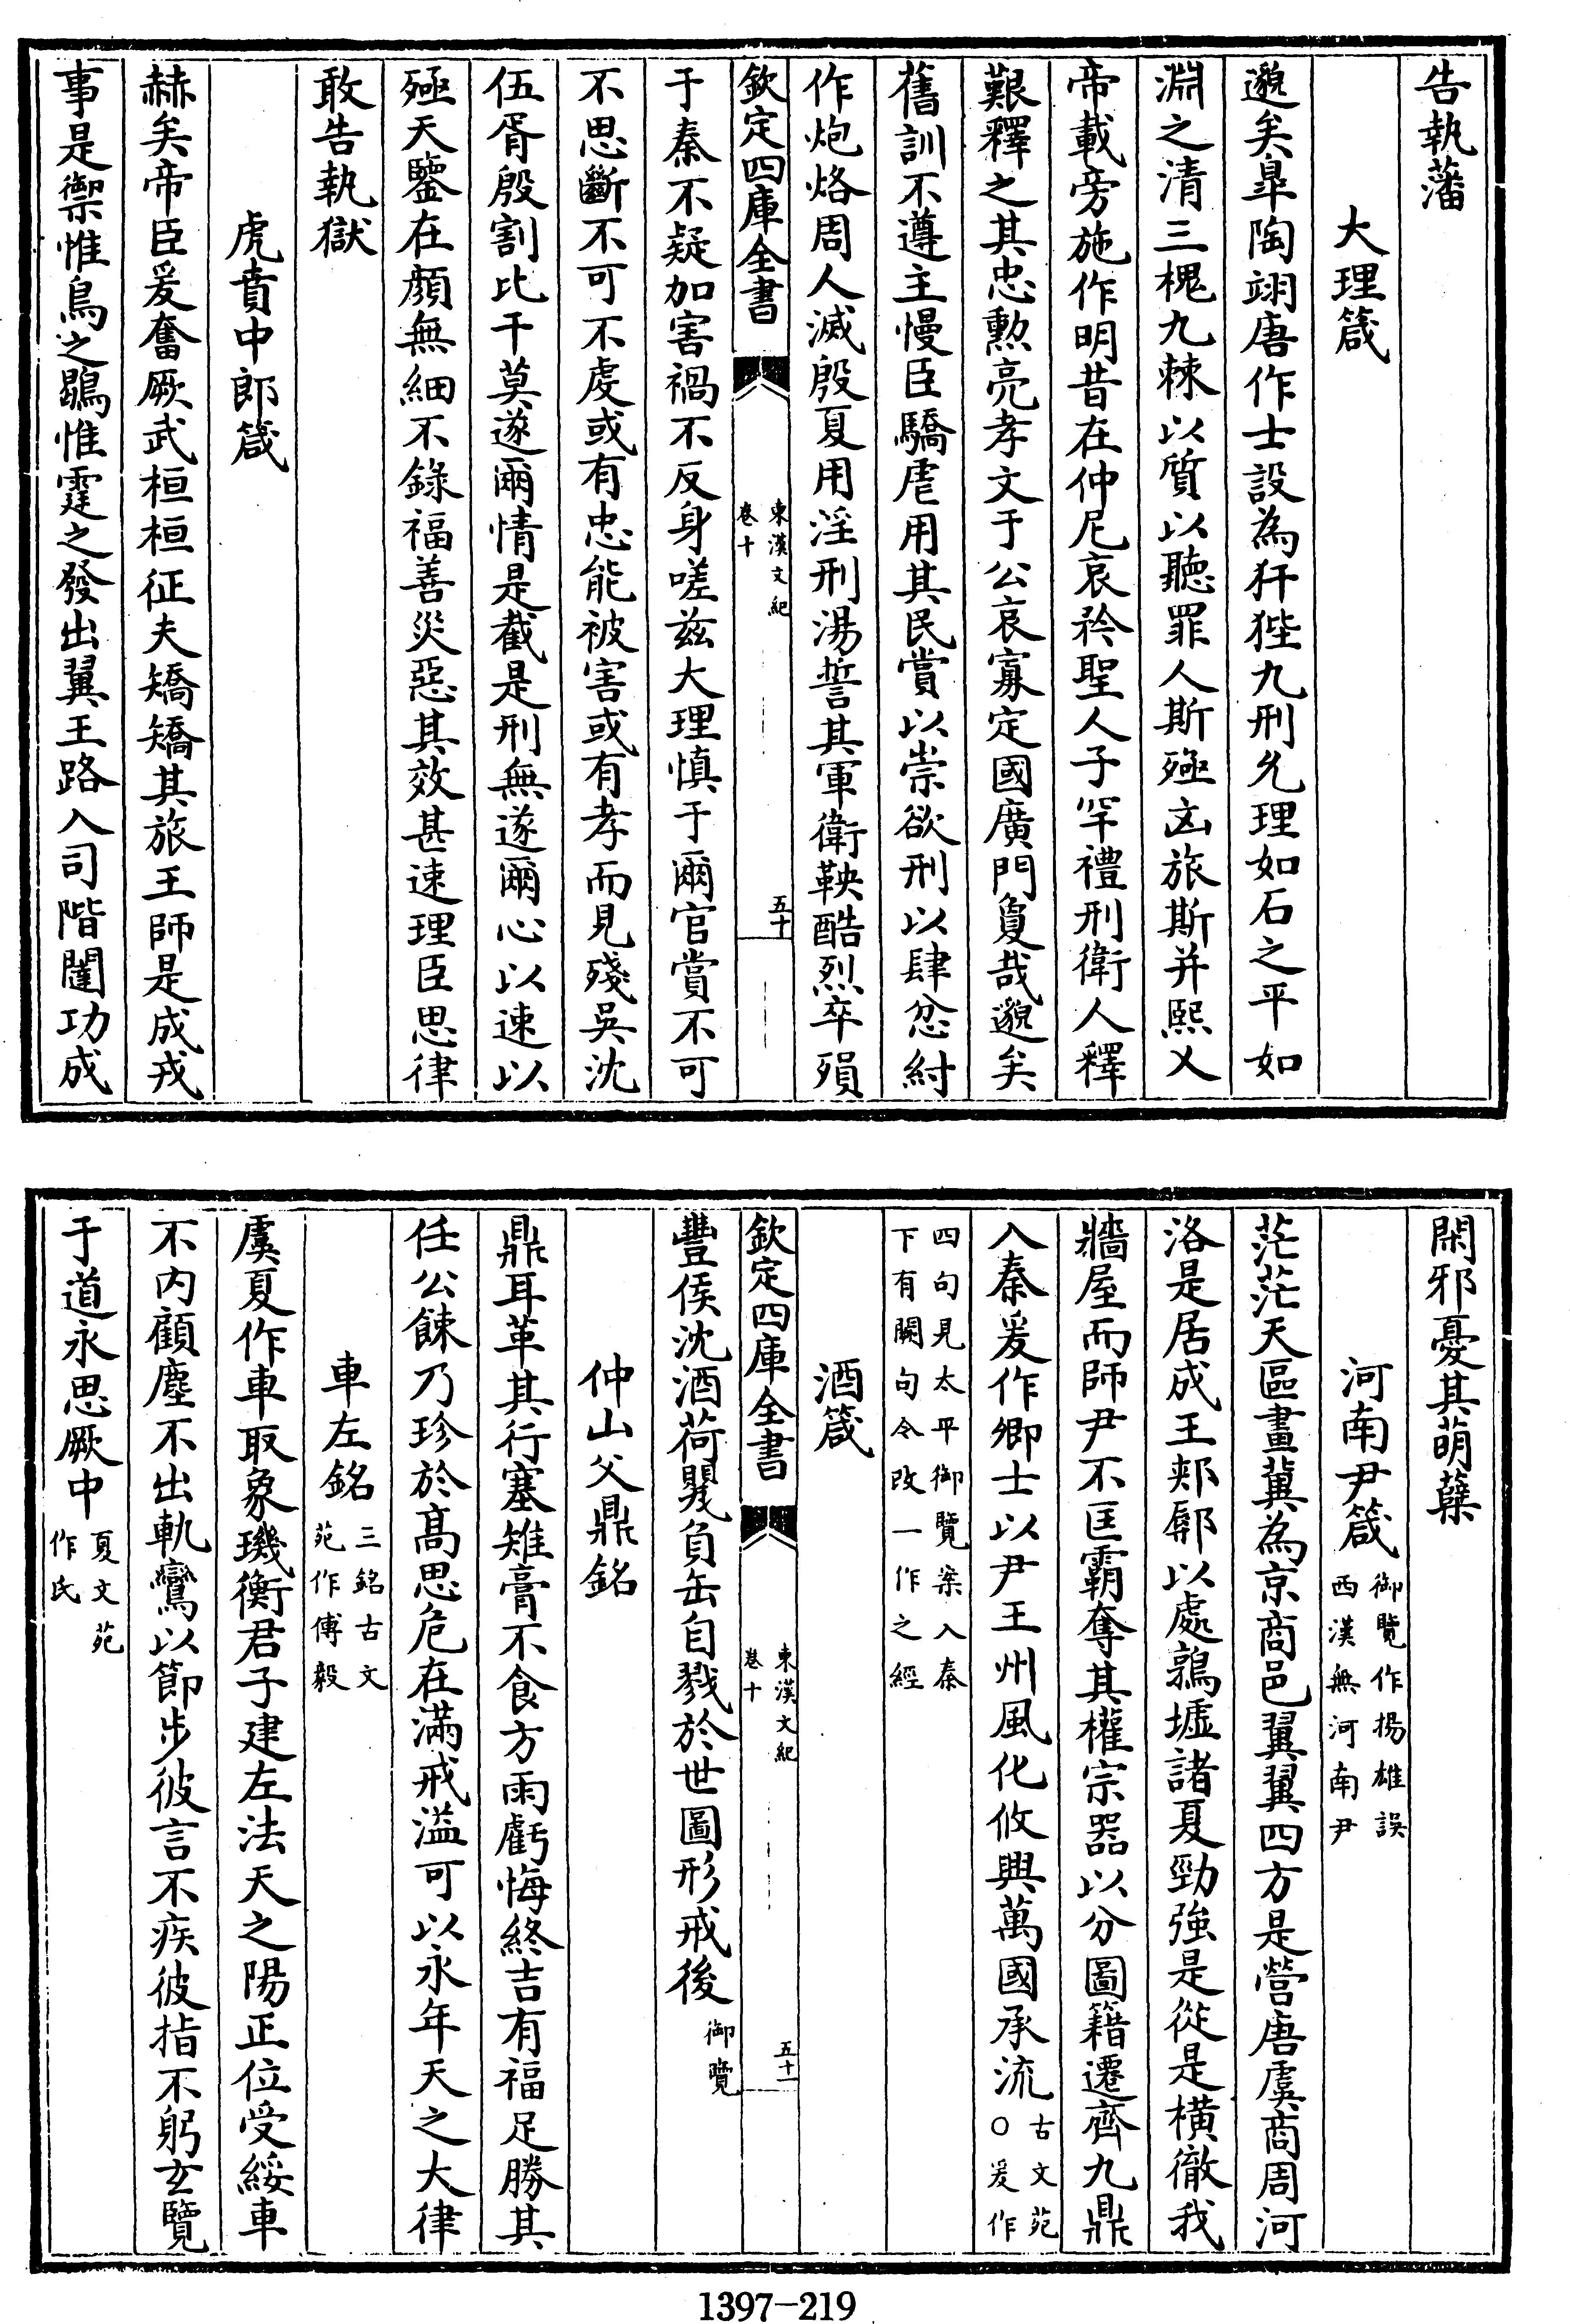 告執藩
大理箴
邈矣臯陶翊唐作士設為犴狴九刑允理如石之平如
淵之清三槐九棘以質以聽罪人斯殛凶旅斯并熙乂
帝載旁施作明昔在仲尼哀矜聖人子罕禮刑衛人釋
艱釋之其忠勲亮孝文于公哀寡定國廣門敻哉邈矣
舊訓不遵主慢臣驕虐用其民賞以崇欲刑以肆忿紂
作炮烙周人滅殷夏用淫刑湯誓其軍衛鞅酷烈卒殞
欽定四庫全書
東漢文紀
卷十
五十
于秦不疑加害禍不反身嗟兹大理慎于爾官賞不可
不思斷不可不虔或有忠能被害或有孝而見殘吳沈
伍胥殷割比干莫遂爾情是截是刑無遂爾心以速以
殛天鑒在顏無細不錄福善災惡其效甚速理臣思律
敢告執獄
虎賁中郎箴
赫矣帝臣爰奮厥武桓桓征夫矯矯其旅王師是成戎
事是禦惟鳥之鶡惟霆之發出翼王路入司階闥功成
閑邪憂其萌蘖
河南尹箴
御覽作揚雄誤
西漢無河南尹
茫茫天區畫冀為京商邑翼翼四方是營唐虞商周河
洛是居成王郟鄏以處鶉墟諸夏勁強是從是横徹我
牆屋而師尹不匡霸奪其權宗器以分圖籍遷齊九鼎
入秦爰作卿士以尹王州風化攸興萬國承流
古文苑
○爰作
四句見太平御覽案入秦
下有闕句令改一作之經
酒箴
欽定四庫全書
東漢文紀
卷十
五十一
豐侯沈酒荷罌負缶自戮於世圖形戒後
御覽
仲山父鼎銘
鼎耳革其行塞雉膏不食方雨虧悔終吉有福足勝其
任公餗乃珍於髙思危在滿戒溢可以永年天之大律
車左銘
三銘古文
苑作傅毅
虞夏作車取象璣衡君子建左法天之陽正位受綏車
不内顧塵不出軌鸞以節步彼言不疾彼指不躬玄覽
于道永思厥中
夏文苑
作氏
1397-219